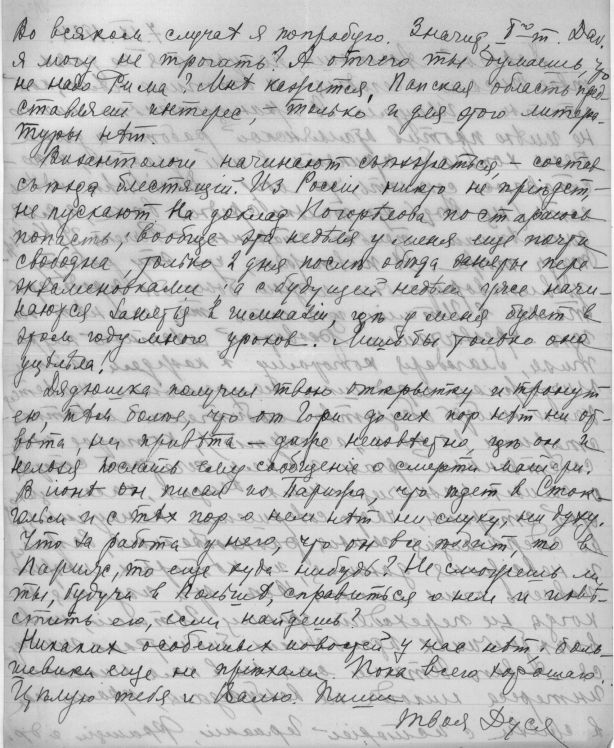 Во всяком случаѣ я попробую. Значит,
я могу не трогать? А отчего ты думаешь, что
не надо Рима? Мнѣ кажется, Папская область пред-
ставляет интерес, – только и для этого литера-
туры нѣт.
Византологи начинают съѣзжаться, – состав
съѣзда блестящій. Из Россіи никто не пріѣдет,
не пускают. На доклад Погорѣлова постараюсь
попасть, вообще эта недѣля у меня еще почти
свободна, только 2 дня послѣ обѣда заняты пере-
экзаменовками, а с будущей недѣли уже начи-
наются занятія в гимназіи, гдѣ у меня будет в
этом году много уроков. Лишь бы только она
уцѣлѣла!
Дядюшка получил твою открытку и тронут
ею, тѣм болѣе, что от до сих пор нѣт ни от-
вѣта, ни привѣта – даже неизвѣстно, гдѣ он и
нельзя послать ему сообщеніе о смерти матери.
В іюнѣ он писал из Парижа, что ѣдет в Сток-
гольм и с тѣх пор о нем нѣт ни слуху, ни духу.
Что за работа у него, что он все ѣздит, то в
Париж, то еще куда нибудь? Не сможешь ли
ты, будучи в Польшѣ, справиться о нем и извѣ-
стить его, если найдешь?
Никаких особенных новостей у нас нѣт. Боль-
шевики еще не пріѣхали. Пока всего хорошаго.
Цѣлую тебя и Валю. Пиши
Твоя Дуся